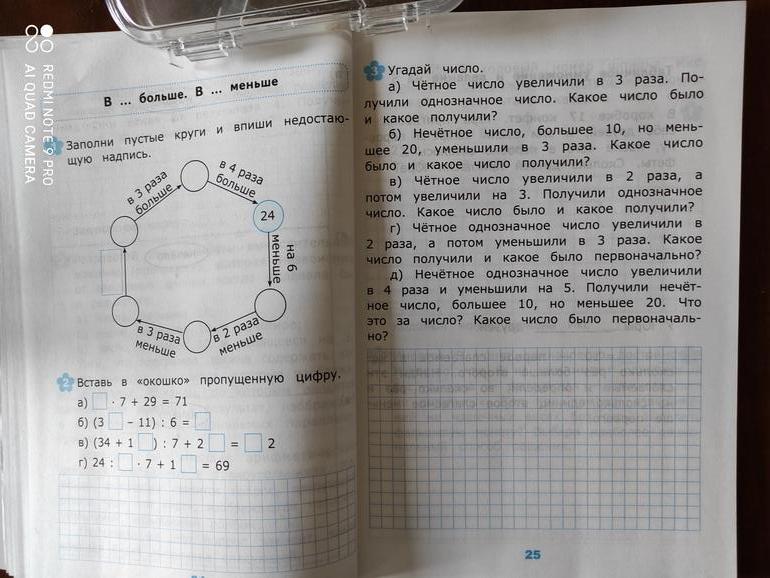 REDMI NOTE 9 PRO
AI QUAD CAMERA
В ... больше. В ... меньше
Заполни пустые круги и впиши недостаю-
щую надпись.
в 3 раза
больше
в 4 раза
больше
24
на 6
меньше
в 2 раза
меньше
в 3 раза
меньше
2 Вставь в «окошко» пропущенную цифру.
а) □ · 7 + 29 = 71
б) (3 □ – 11) : 6 = □
в) (34 + 1 □) : 7 + 2 □ = □ 2
г) 24 : □ · 7 + 1 □ = 69
3 Угадай число.
а) Чётное число увеличили в 3 раза. По-
лучили однозначное число. Какое число было
и какое получили?
б) Нечётное число, большее 10, но мень-
шее 20, уменьшили в 3 раза. Какое число
было и какое число получили?
в) Чётное число увеличили в 2 раза, а
потом увеличили на 3. Получили однозначное
число. Какое число было и какое получили?
г) Чётное однозначное число увеличили в
2 раза, а потом уменьшили в 3 раза. Какое
число получили и какое было первоначально?
д) Нечётное однозначное число увеличили
в 4 раза и уменьшили на 5. Получили нечёт-
ное число, большее 10, но меньшее 20. Что
это за число? Какое число было первоначаль-
но?
25